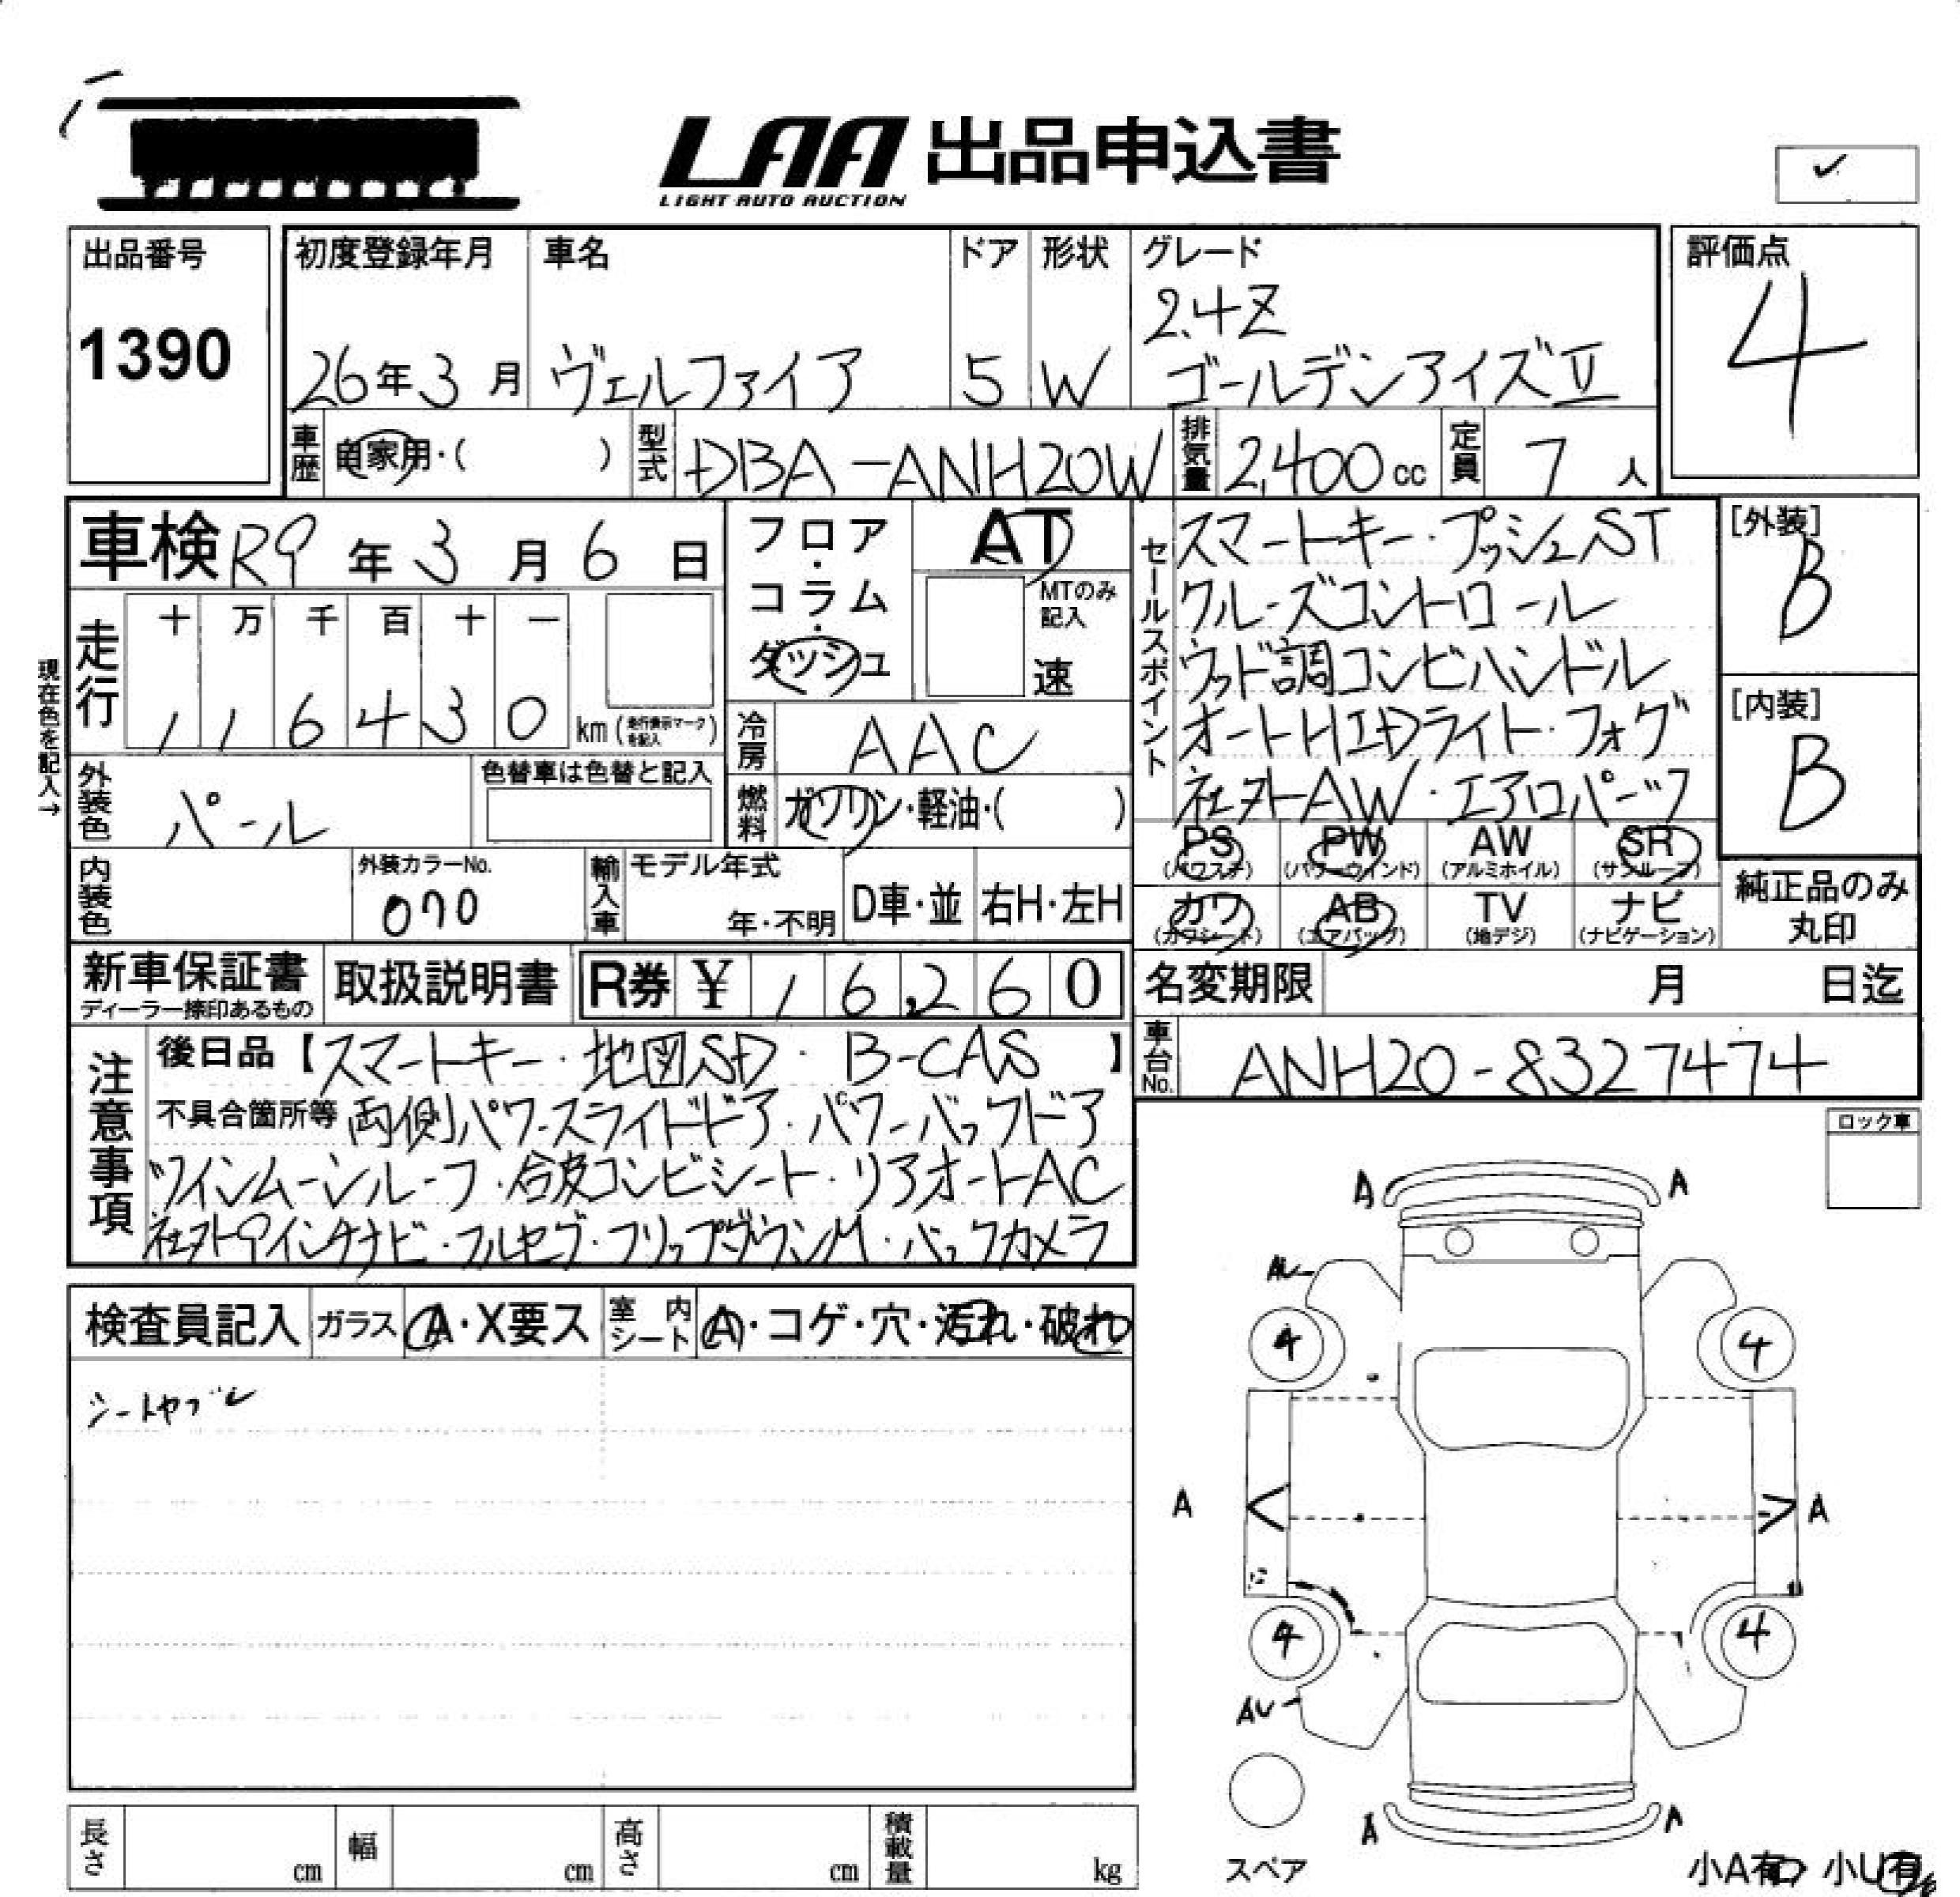 LAA 出品申込書
LIGHT AUTO AUCTION
✓
出品番号
1390
初度登録年月
26年3月
車名
ヴェルファイア
ドア
5
形状
W
グレード
2.4Z
ゴールデンアイズⅡ
評価点
4
車歴
自家用・( )
型式
DBA-ANH20W
排気量
2,400 cc
定員
7 人
車検 R9年3月6日
フロア・コラム・ダッシュ
AT
MTのみ記入
速
セールスポイント
スマートキー・プッシュST
クルーズコントロール
ウッド調コンビハンドル
オートHIDライト・フォグ
社外AW・エアロパーツ
[外装]
B
[内装]
B
現在色を記入→
走行
十 万 千 百 十 一
1 1 6 4 3 0 km (走行表示マークを記入)
冷房
AAC
外装色
パール
色替車は色替と記入
燃料
ガソリン・軽油・( )
PS (パワステ)
PW (パワーウインド)
AW (アルミホイル)
SR (サンルーフ)
カワ (カワシート)
AB (エアバッグ)
TV (地デジ)
ナビ (ナビゲーション)
純正品のみ丸印
内装色
外装カラーNo.
070
輸入車
モデル年式
年・不明
D車・並
右H・左H
新車保証書
ディーラー捺印あるもの
取扱説明書
R券 ¥ 16,260
名変期限 月 日迄
車台No.
ANH20-8327474
注意事項
後日品【スマートキー・地図SD・B-CAS】
不具合箇所等 両側パワースライドドア・パワーバックドア
ツインムーンルーフ・合皮コンビシート・リアオートAC
社外9インチナビ・フルセグ・フリップダウンM・バックカメラ
ロック車
検査員記入
ガラス
A・X要ス
室内シート
A・コゲ・穴・汚れ・破れ
シートヤブレ
A A
AU
4 4
A A
4 4
AU
A A
スペア
小A有 小U有
長さ cm
幅 cm
高さ cm
積載量 kg